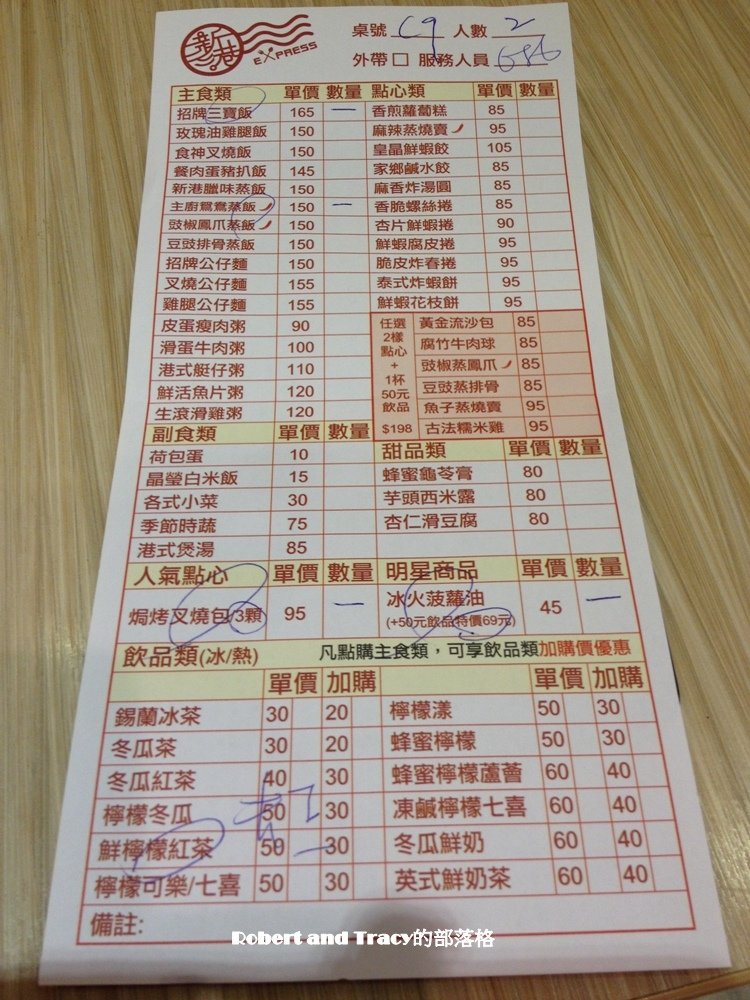 新港 EXPRESS
桌號 C9 人數 2
外帶 □ 服務人員
主食類 單價 數量 點心類 單價 數量
招牌三寶飯 165 一 香煎蘿蔔糕 85
玫瑰油雞腿飯 150 麻辣蒸燒賣 95
食神叉燒飯 150 皇晶鮮蝦餃 105
餐肉蛋豬扒飯 145 家鄉鹹水餃 85
新港臘味蒸飯 150 麻香炸湯圓 85
主廚鴛鴦蒸飯 150 一 香脆螺絲捲 85
豉椒鳳爪蒸飯 150 杏片鮮蝦捲 90
豆豉排骨蒸飯 150 鮮蝦腐皮捲 95
招牌公仔麵 150 脆皮炸春捲 95
叉燒公仔麵 155 泰式炸蝦餅 95
雞腿公仔麵 155 鮮蝦花枝餅 95
皮蛋瘦肉粥 90 任選2樣點心+1杯50元飲品$198 黃金流沙包 85
滑蛋牛肉粥 100 腐竹牛肉球 85
港式艇仔粥 110 豉椒蒸鳳爪 85
鮮活魚片粥 120 豆豉蒸排骨 85
生滾滑雞粥 120 魚子蒸燒賣 95
古法糯米雞 95
副食類 單價 數量 甜品類 單價 數量
荷包蛋 10 蜂蜜龜苓膏 80
晶瑩白米飯 15 芋頭西米露 80
各式小菜 30 杏仁滑豆腐 80
季節時蔬 75
港式煲湯 85
人氣點心 單價 數量 明星商品 單價 數量
焗烤叉燒包/3顆 95 一 冰火菠蘿油 45 一
(+50元飲品特價69元)
飲品類(冰/熱) 凡點購主食類，可享飲品類加購價優惠
單價 加購 單價 加購
錫蘭冰茶 30 20 檸檬漾 50 30
冬瓜茶 30 20 蜂蜜檸檬 50 30
冬瓜紅茶 40 30 蜂蜜檸檬蘆薈 60 40
檸檬冬瓜 50 30 凍鹹檸檬七喜 60 40
鮮檸檬紅茶 50 一 30 冬瓜鮮奶 60 40
檸檬可樂/七喜 50 30 英式鮮奶茶 60 40
備註:
Robert and Tracy的部落格